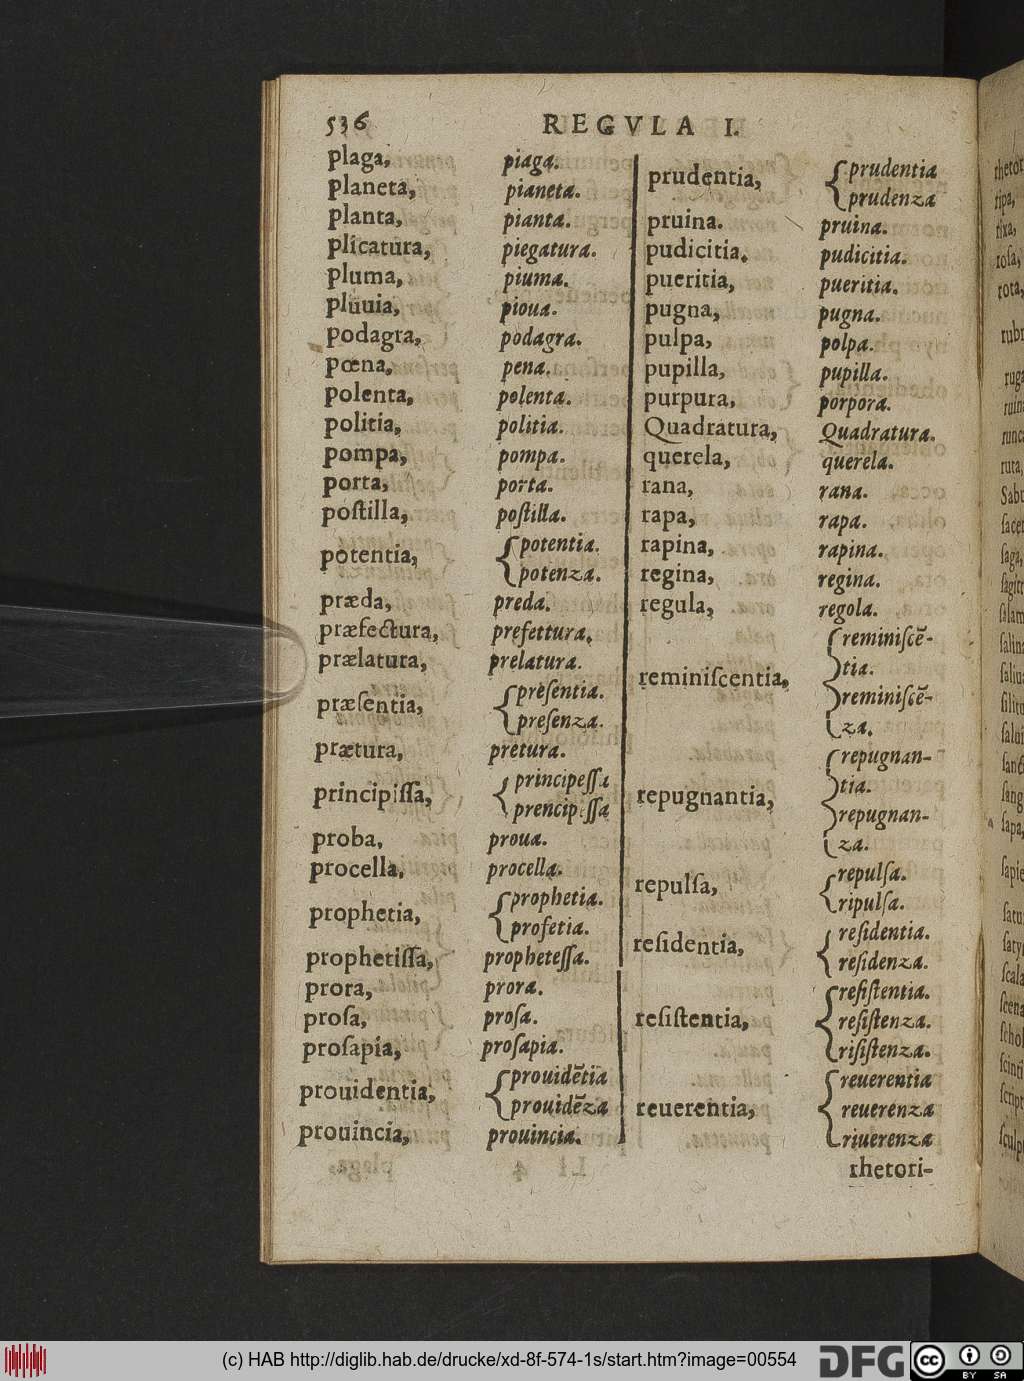 536 REGVLA I.
plaga, piaga.
planeta, pianeta.
planta, pianta.
plicatura, piegatura.
pluma, piuma.
pluuia, pioua.
podagra, podagra.
pœna, pena.
polenta, polenta.
politia, politia.
pompa, pompa.
porta, porta.
poſtilla, poſtilla.
potentia, { potentia.
potenza.
præda, preda.
præfectura, prefettura.
prælatura, prelatura.
præſentia, { preſentia.
preſenza.
prætura, pretura.
principiſſa, { principeſſa
prencipeſſa
proba, proua.
procella, procella.
prophetia, { prophetia.
profetia.
prophetiſſa, propheteſſa.
prora, prora.
proſa, proſa.
proſapia, proſapia.
prouidentia, { prouidẽtia
prouidẽza
prouincia, prouincia.
prudentia, { prudentia
prudenza
pruina. pruina.
pudicitia. pudicitia.
pueritia, pueritia.
pugna, pugna.
pulpa, polpa.
pupilla, pupilla.
purpura, porpora.
Quadratura, Quadratura.
querela, querela.
rana, rana.
rapa, rapa.
rapina, rapina.
regina, regina.
regula, regola.
reminiſcentia, { reminiſcẽ-
tia.
reminiſcẽ-
za.
repugnantia, { repugnan-
tia.
repugnan-
za.
repulſa, { repulſa.
ripulſa.
reſidentia, { reſidentia.
reſidenza.
reſiſtentia, { reſiſtentia.
reſiſtenza.
riſiſtenza.
reuerentia, { reuerentia
reuerenza
riuerenza
rhetori-
rhetor
ripa,
rixa,
roſa,
rota,
rubi
ruga
ruina
runca
ruta,
Sabu
ſacer
ſaga,
ſagitt
ſalam
ſalina
ſaliua
ſapa,
ſapie
ſatu
ſaty
ſcala
ſcena
ſchol
ſcinti
ſcript
ſculp
(c) HAB http://diglib.hab.de/drucke/xd-8f-574-1s/start.htm?image=00554
DFG
cc BY SA